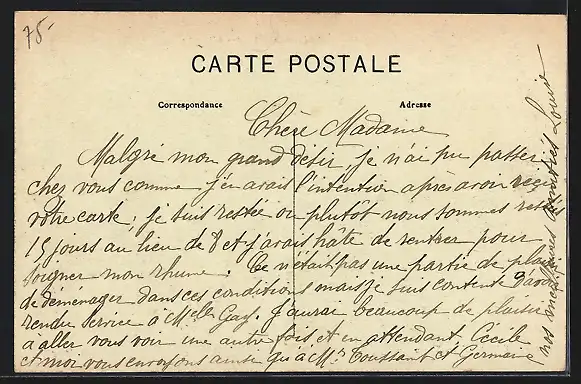 75-
CARTE POSTALE
Correspondance
Adresse
Chère Madame
Malgré mon grand désir, je n'ai pu passer
chez vous comme j'en avais l'intention après avoir reçu
votre carte; je suis restée ou plutôt nous sommes restés
15 jours au lieu de 8 et j'avais hâte de rentrer pour
soigner mon rhume. Ce n'était pas une partie de plaisir
de déménager dans ces conditions mais je suis contente d'avoir
rendu service à Melle Gay. J'aurai beaucoup de plaisir
à aller vous voir une autre fois et en attendant, Cécile
et moi vous envoyons ainsi qu'à Mr Toussaint et Germaine
nos meilleures amitiés Louise